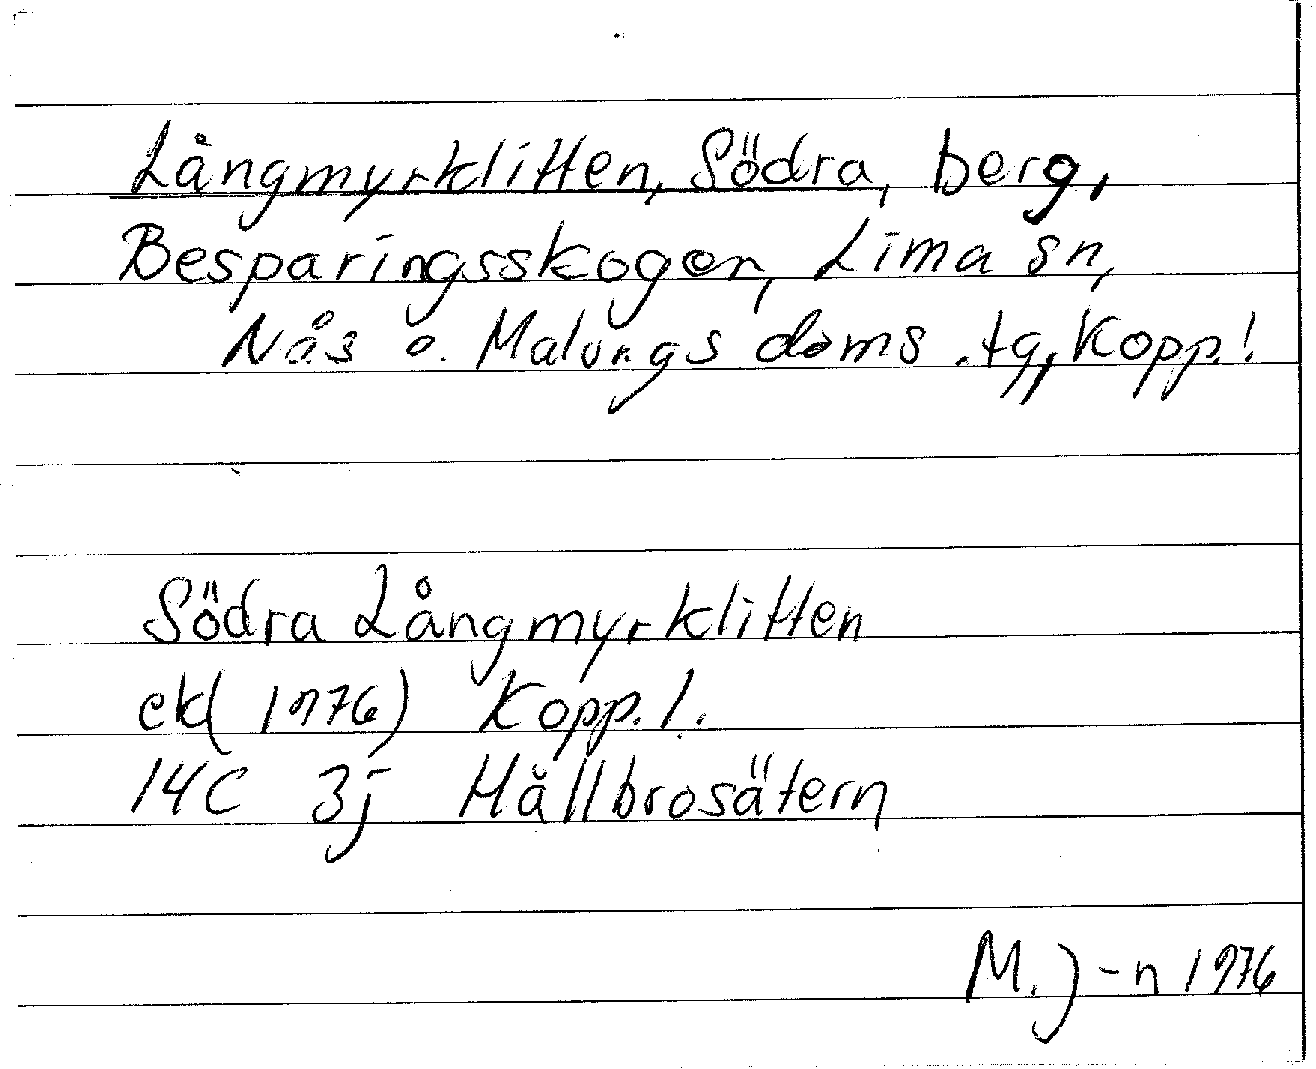 Långmyrklitten, Södra, berg,
Besparingsskogen, Lima sn,
Nås o. Malungs doms.tg, Kopp.l.
Södra Långmyrklitten
ek (1976) Kopp.l.
14C 3j Hållbrosätern
M.J-n 1976